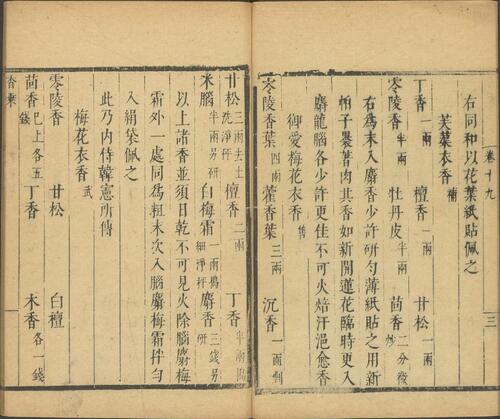 卷十九
三
右同和以花葉紙貼佩之
芙蕖衣香 補
丁香 一兩 檀香 一兩 甘松 一兩
零陵香 半兩 牡丹皮 半兩 茴香 二分微炒
右為末入麝香少許研勻薄紙貼之用新
帕子裹著肉其香如新開蓮花臨時更入
麝龍腦各少許更佳不可火焙汗浥愈香
御愛梅花衣香 售
零陵香葉 四兩 藿香葉 三兩 沉香 一兩剉
甘松 三兩去土洗淨秤 檀香 二兩 丁香 半兩搗
米腦 半兩另研 白梅霜 一兩搗細淨秤 麝香 三錢另研
以上諸香並須日乾不可見火除腦麝梅
霜外一處同為粗末次入腦麝梅霜拌勻
入絹袋佩之
此乃內侍韓憲所傳
梅花衣香 武
零陵香 甘松 白檀
茴香 已上各五錢 丁香 木香 各一錢
香乘